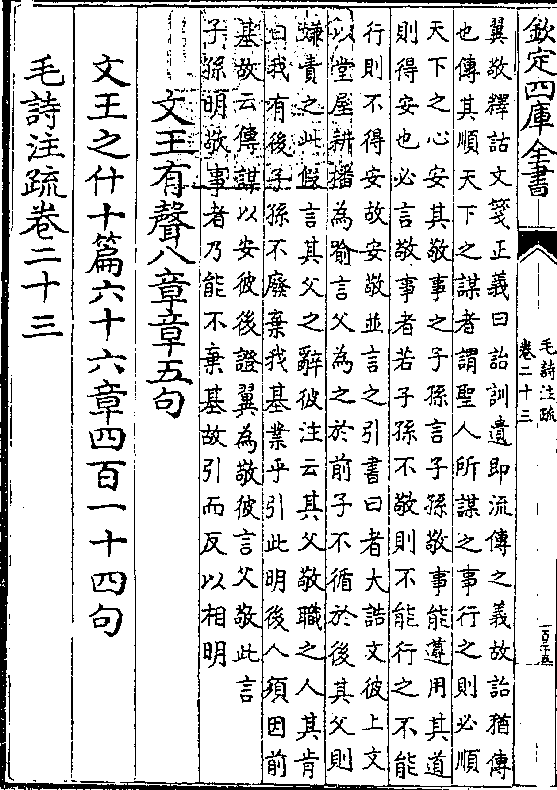 欽定四庫全書
毛詩注疏
卷二十三
翼敬釋詁文箋正義曰詒訓遺即流傳之義故詒猶傳
也傳其順天下之謀者謂聖人所謀之事行之則必順
天下之心安其敬事之子孫言子孫敬事能遵用其道
則得安也必言敬事者若子孫不敬則不能行之不能
行則不得安故安敬並言之引書曰者大誥文彼上文
以堂屋耕播為喻言父為之於前子不循於後其父則
嫌責之此假言其父之辭彼注云其父敬職之人其肯
曰我有後子孫不廢棄我基業乎引此明後人須因前
基故云傳謀以安彼後證翼為敬彼言父敬此言
子孫明敬事者乃能不棄基故引而反以相明
文王有聲八章章五句
文王之什十篇六十六章四百一十四句
毛詩注疏卷二十三